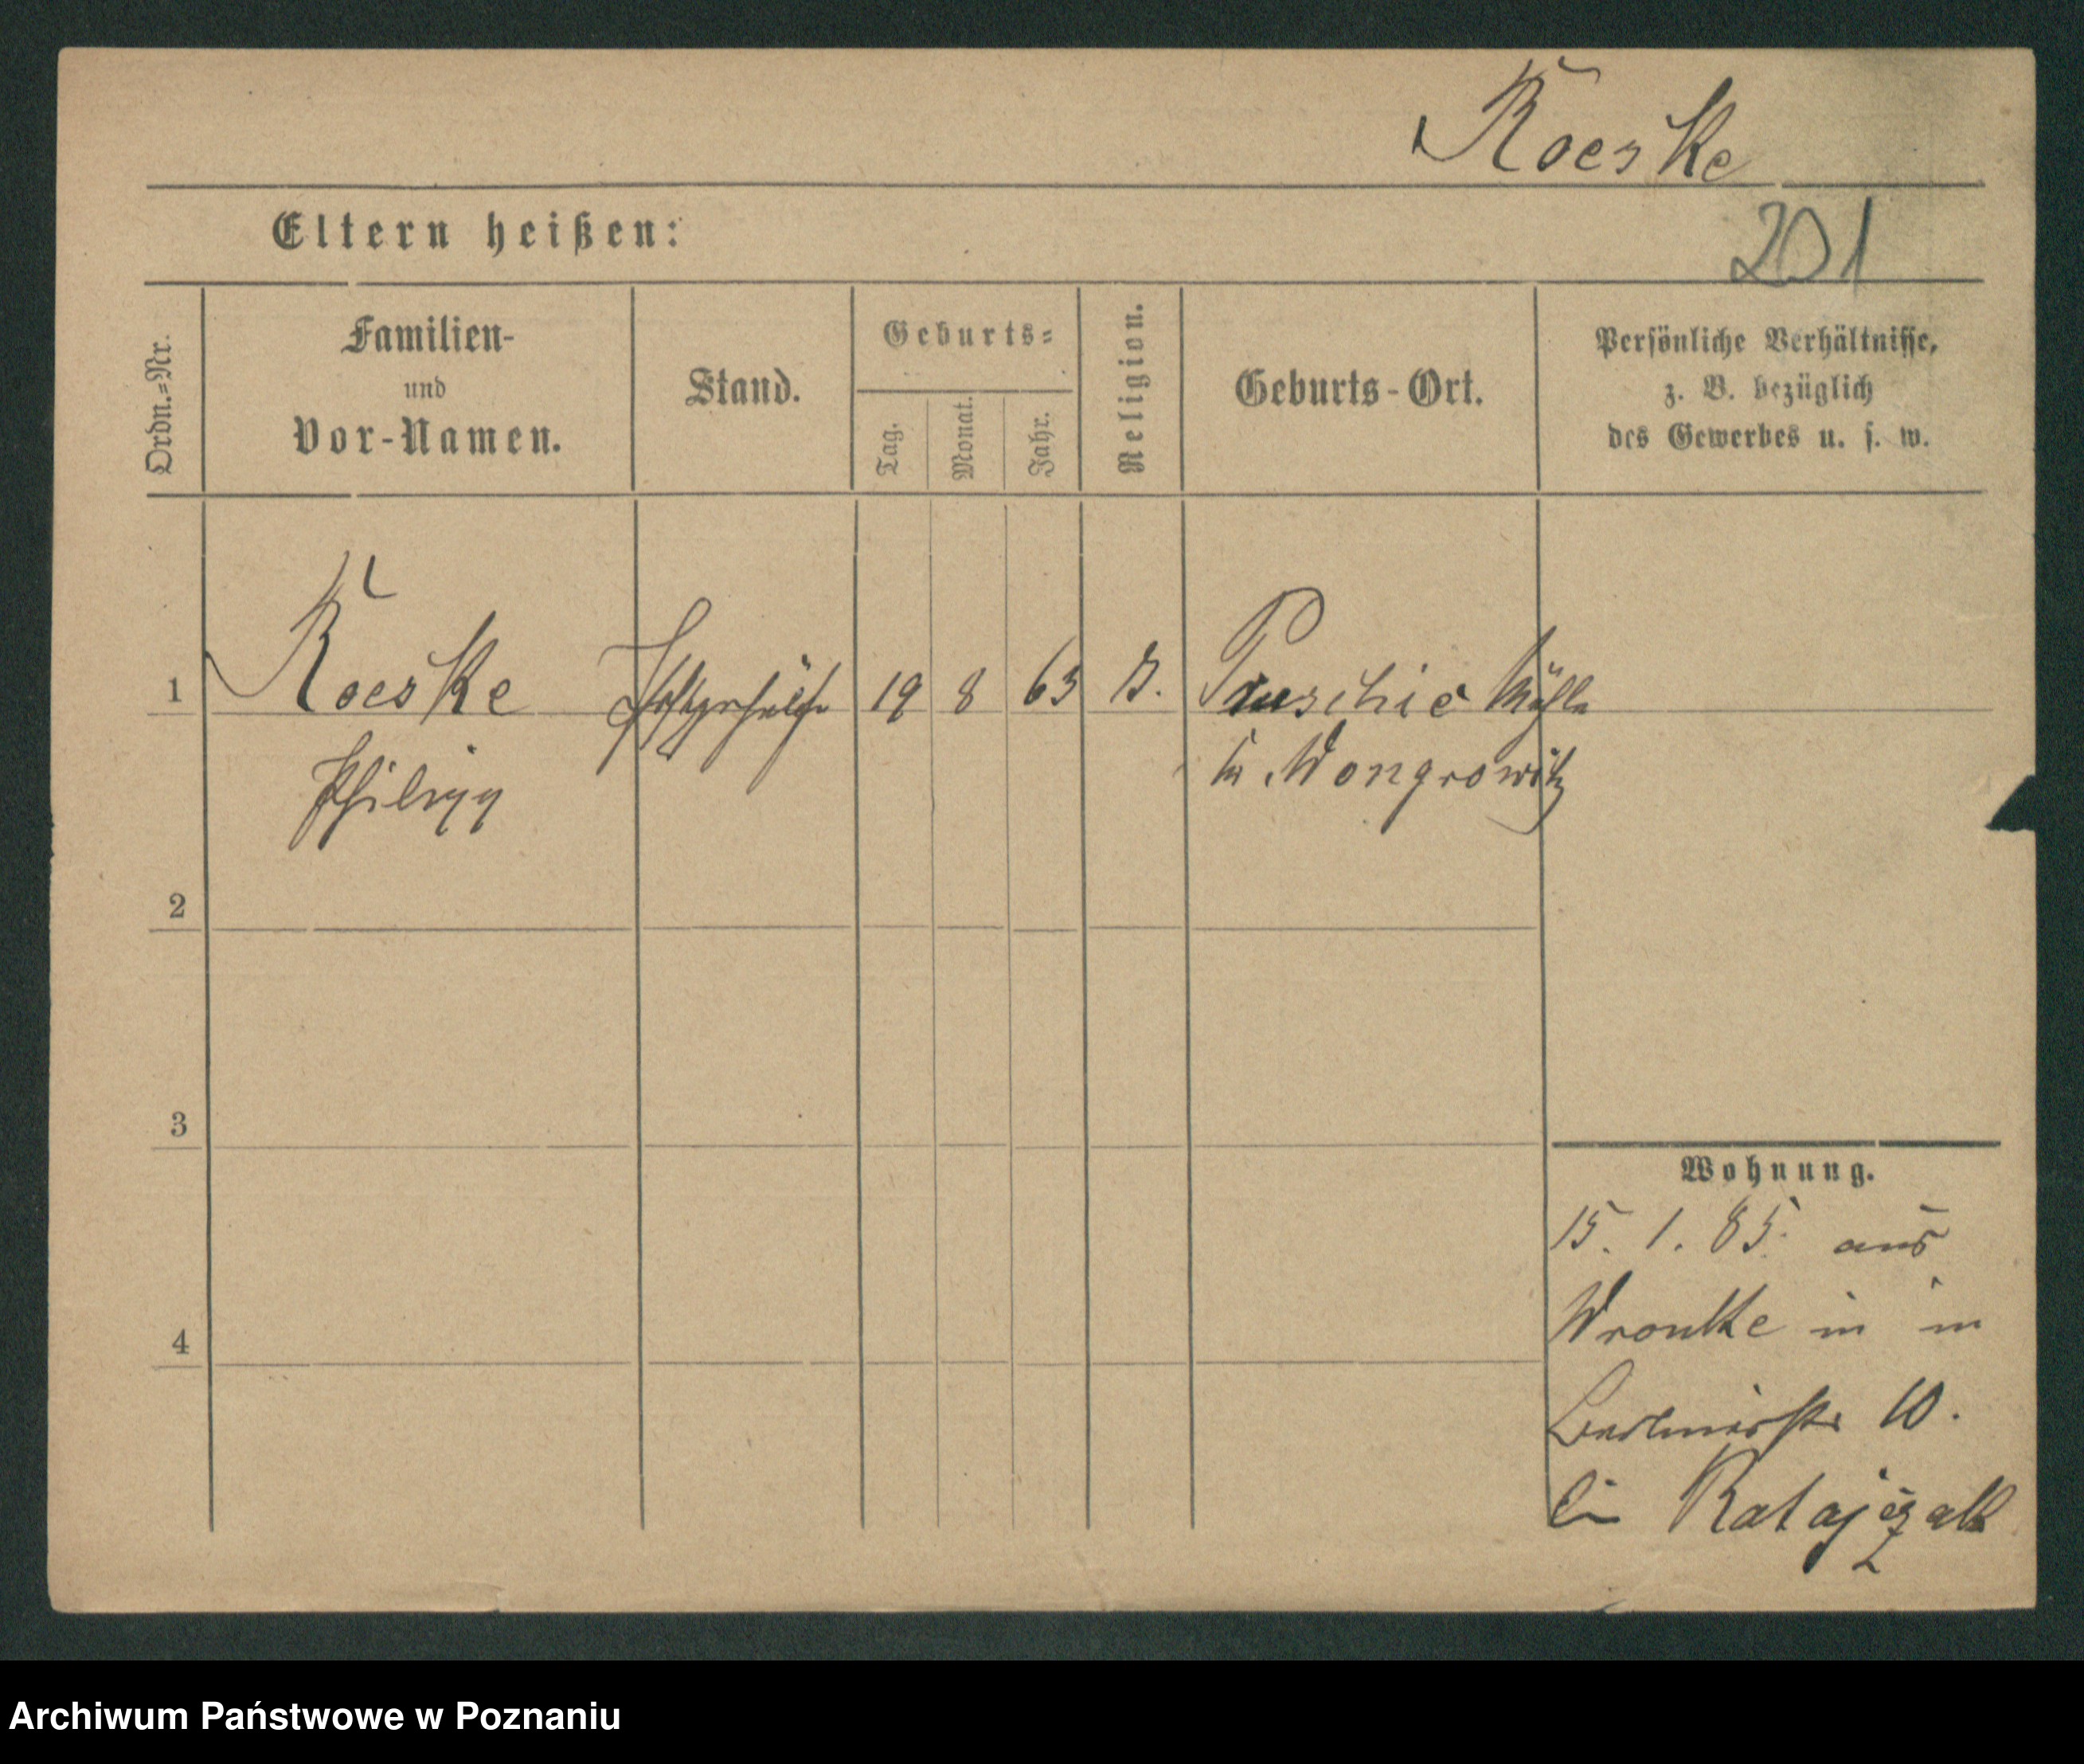 Roeske
Eltern heißen:
201
Ordn.=Nr.
Familien-
und
Vor-Namen.
Stand.
Geburts=
Tag.
Monat.
Jahr.
Religion.
Geburts-Ort.
Persönliche Verhältnisse,
z. B. bezüglich
des Gewerbes u. s. w.
1
Roeske
19
8
63
Mühle
Philipp
Wongrowitz
2
3
Wohnung.
15. 1. 85. aus
Wronke in
4
10.
Ratajczak
Archiwum Państwowe w Poznaniu